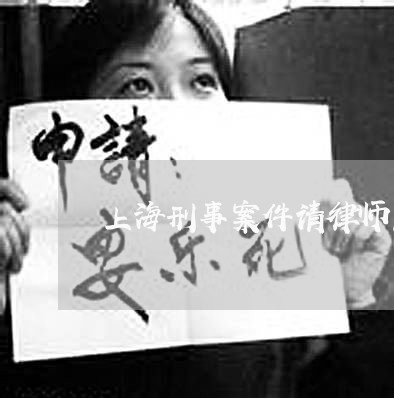 申請：
上海刑事案件请律师
安乐死